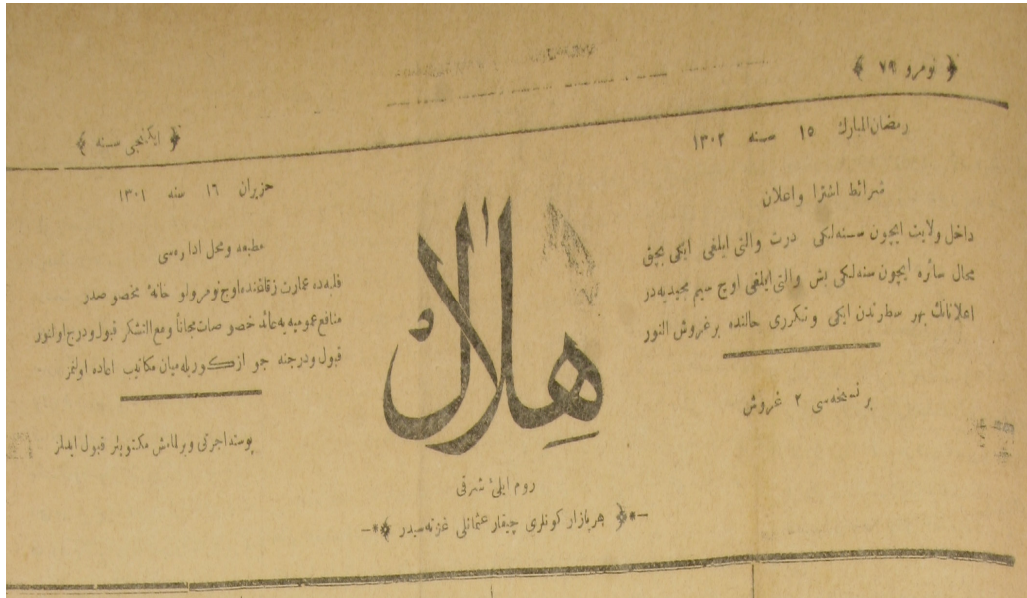 ﴿ نومرو ٧٩ ﴾
﴿ ایکنجی سنه ﴾
رمضان‌المبارك ١٥ سنه ١٣٠٢
شرائط اشترا واعلان
داخل ولایت ایچون سنه‌لکی درت والتی ایلغی ایکی بچق
محال سائره ایچون سنه‌لکی بش والتی ایلغی اوچ سیم مجیدیه‌در
اعلاناتك بهر سطرندن ایکی وتکرری حالنده برغروش النور
برنسخه‌سی ٢ غروش
هلال
روم ایلئ شرقی
﴿ هربازار کونلری چیقار عثمانلی غزته‌سیدر ﴾
حزیران ١٦ سنه ١٣٠١
مطبعه ومحل اداره‌سی
فلبه‌ده عمارت زقاقنده اوچ نومرولو خانهٔ مخصوصدر
منافع عمومیه‌یه عائد خصوصات مجاناً ومع‌التشکر قبول ودرج اولنور
قبول ودرجنه جواز کوریله‌میان مکاتیب اعاده اولنمز
پوسته اجرتی ویرلمامش مکتوبلر قبول ایدلمز